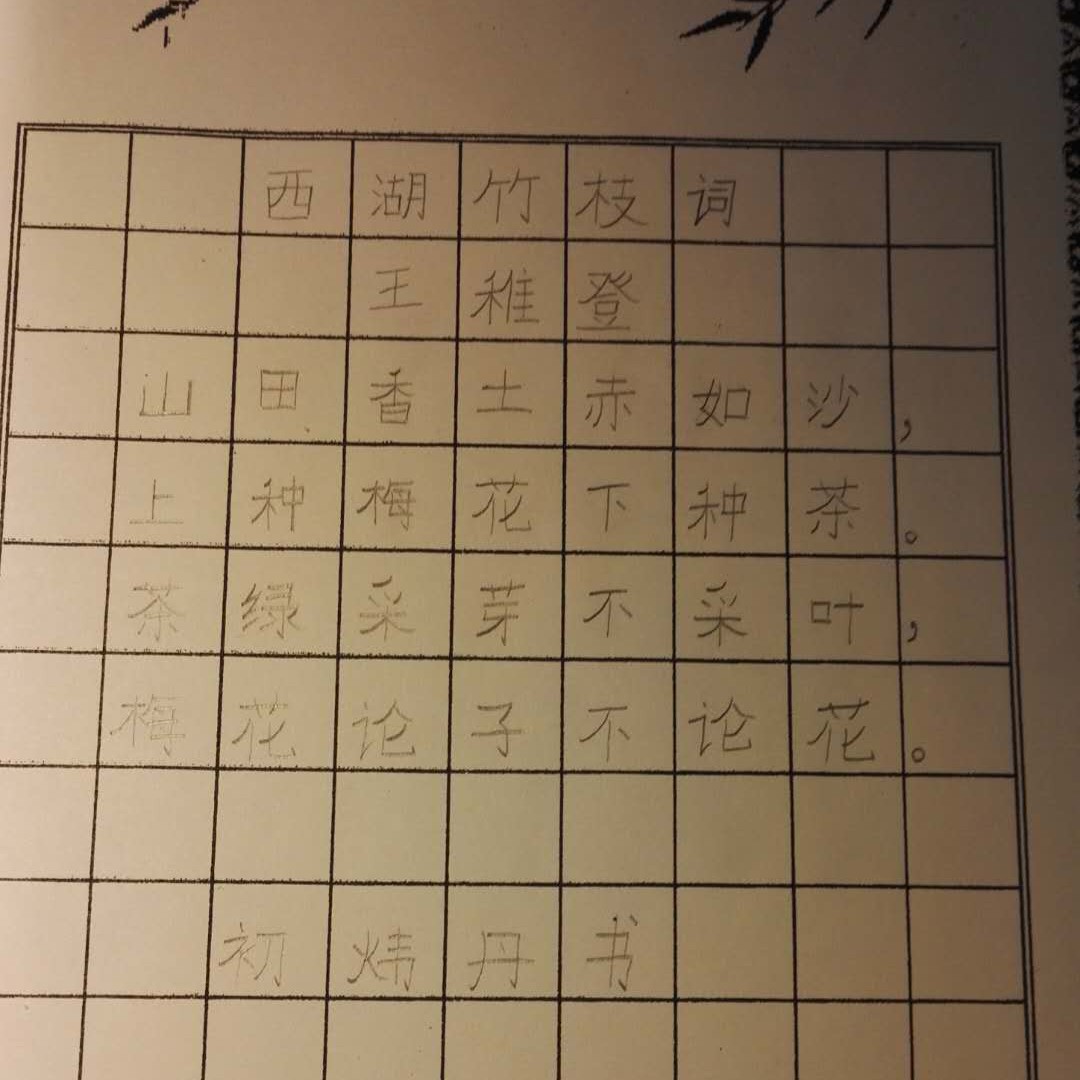 西湖竹枝词
王稚登
山田香土赤如沙，
上种梅花下种茶。
茶绿采芽不采叶，
梅花论子不论花。
初炜丹书